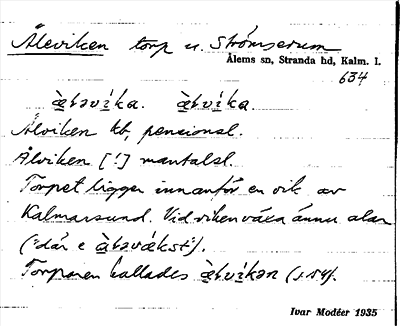 Åleviken torp u. Strömserum
Ålems sn, Stranda hd, Kalm. l.
634
àləvíka. àlvíka.
Ålviken kb, pensionsl.
Ålviken [!] mantalsl.
Torpet ligger innanför en vik av
Kalmarsund. Vid viken växa ännu alar
("där e àləväkst").
Torparen kallades àlvíkən (s. 54).
Ivar Modéer 1935